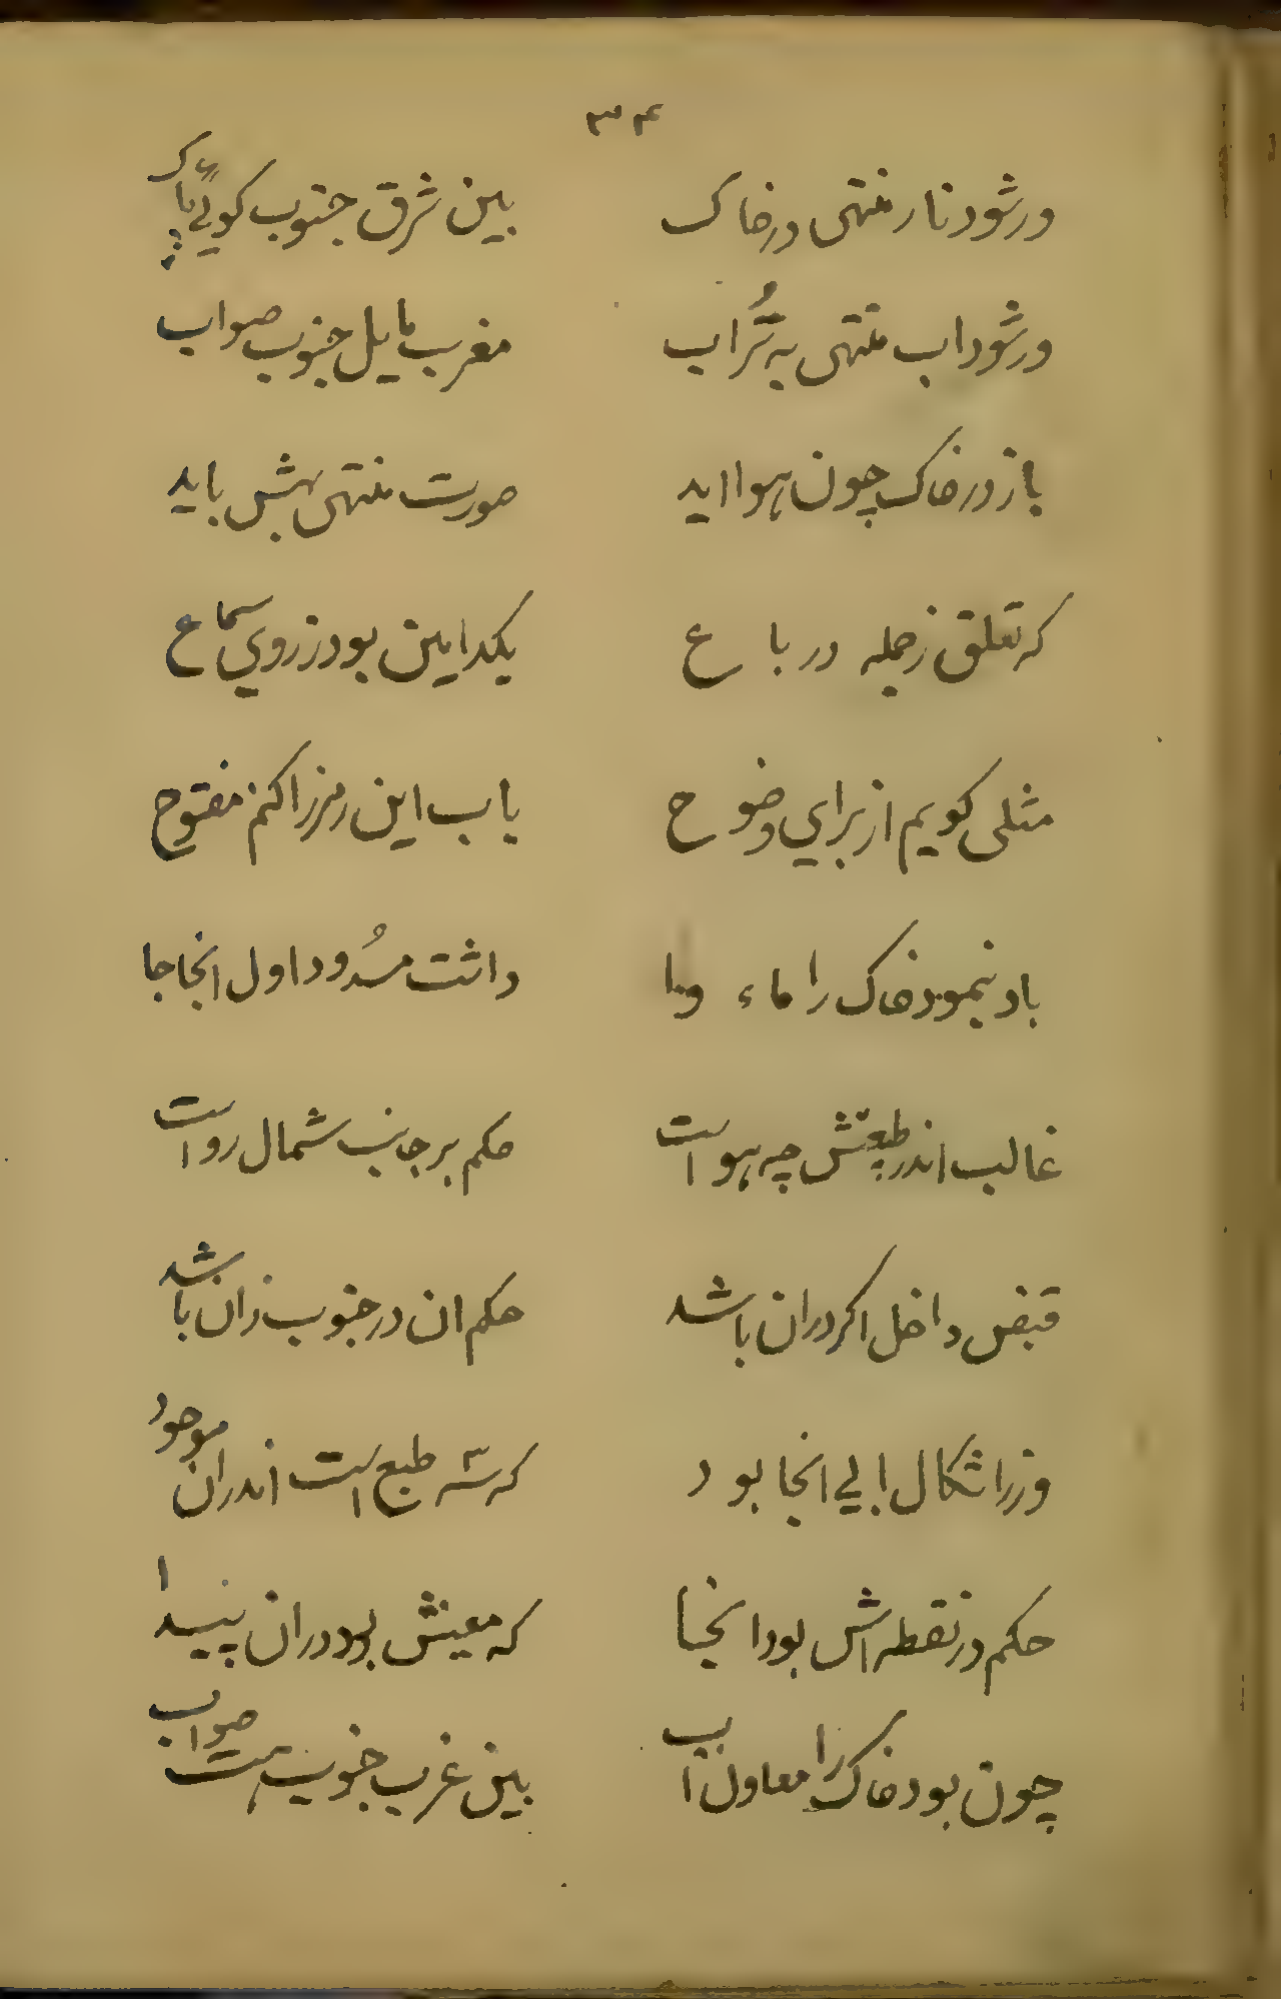 ۳۴
ورشود نار منتهی در خاک بین شرق جنوب کوئی پاک
ورشود اب منتهی به تُراب مغرب مایل جنوب صواب
باز در خاک چون هوا اید صورت منتهی بهش باید
که تعلق ز جمله در باع یکد این بود ز روی سماع
مثلی کویم از برای وضوح باب این رمز را کنم مفتوح
باد نیمود خاک را ماء داشت مسُدود اول انجا جا
غالب اندر طبعش چه هواست حکم بر جانب شمال رواست
قبض داخل اکر دران باشد حکم ان در جنوب زان باشد
وز اشکال انجا بود که سه طبع است اندران موجود
حکم در نقطه اش بود انجا که معینش بود دران پیدا
چون بود خاک را معاون آب بین غرب جنوب هست صواب